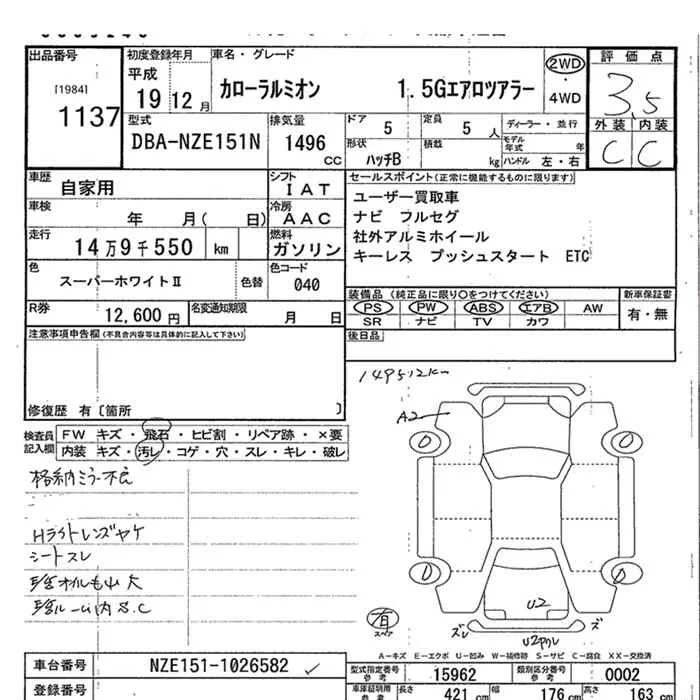 出品番号
[1984]
1137
初度登録年月
平成
19 12 月
車名・グレード
カローラルミオン 1.5Gエアロツアラー
2WD
・
4WD
評価点
3.5
外装 内装
C C
型式
DBA-NZE151N
排気量
1496
CC
ドア 5
定員 5 人
ディーラー・並行
形状
ハッチB
積載 kg
モデル年式 年
ハンドル 左・右
車歴
自家用
シフト
IAT
車検
年 月( 日)
冷房
AAC
走行
14万9千550 km
燃料
ガソリン
色
スーパーホワイトⅡ
色替
色コード
040
R券
12,600 円
名変通知期限
月 日
セールスポイント(正常に機能するものに限ります)
ユーザー買取車
ナビ フルセグ
社外アルミホイール
キーレス プッシュスタート ETC
装備品(純正品に限り○をつけてください)
PS PW ABS エアB AW
SR ナビ TV カワ
新車保証書
有・無
後日品
注意事項申告欄(不具合内容等は具体的に記入して下さい)
修復歴 有〔箇所 〕
149512km
A2
検査員
記入欄
FW キズ・飛石・ヒビ割・リペア跡・×要
内装 キズ・汚レ・コゲ・穴・スレ・キレ・破レ
格納ミラー不良
Hライトレンズヤケ
シートスレ
U2
ズレ ズレ
U2ワレ
有
スペア
A-キズ E-エクボ U-凹み W-補修跡 S-サビ C-腐食 XX-交換済
車台番号
NZE151-1026582
登録番号
型式指定番号
参考
15962
類別区分番号
参考
0002
車庫証明用
参考
長さ
421 cm
幅
176 cm
高さ
163 cm